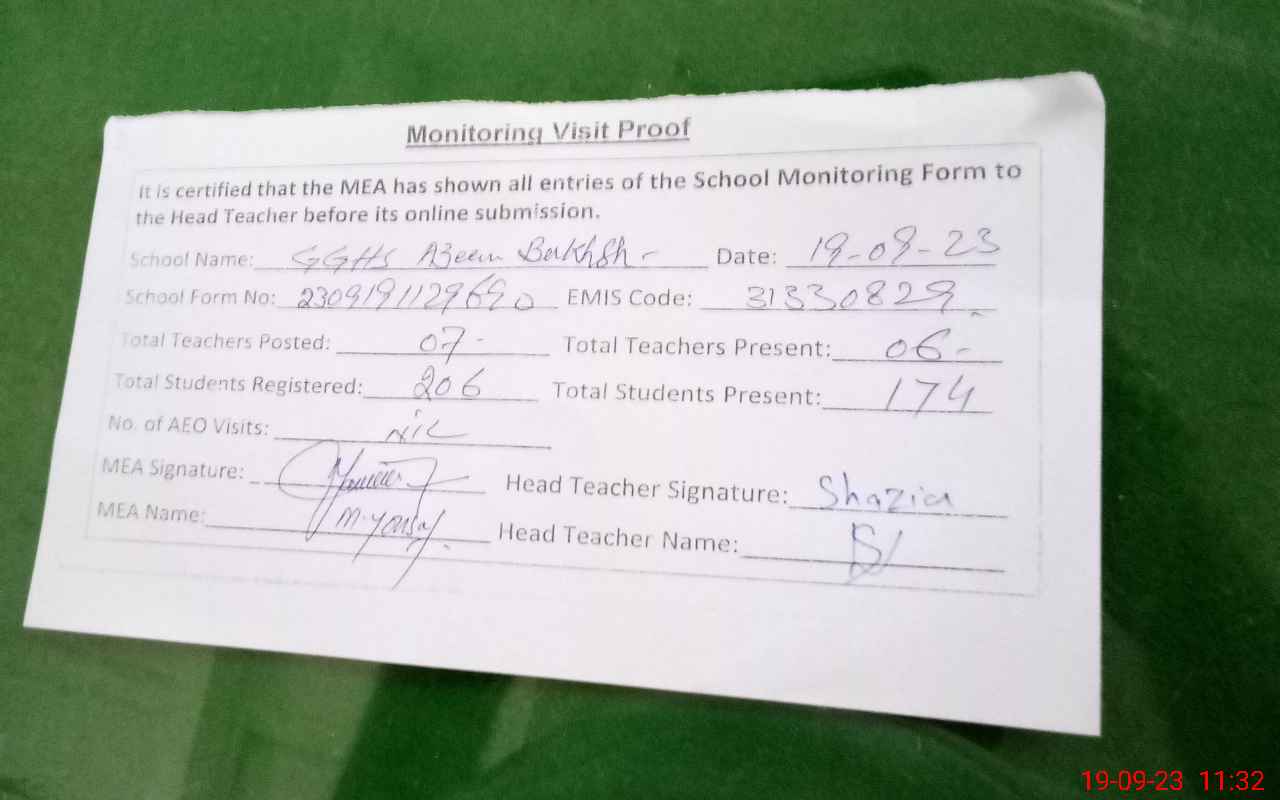 Monitoring Visit Proof
It is certified that the MEA has shown all entries of the School Monitoring Form to
the Head Teacher before its online submission.
School Name: GGHS Azeem Bakhsh - Date: 19-09-23
School Form No: 230919112969 0 EMIS Code: 31330829
Total Teachers Posted: 07- Total Teachers Present: 06-
Total Students Registered: 206 Total Students Present: 174
No. of AEO Visits: NIL
MEA Signature: Head Teacher Signature: Shazia
MEA Name: M. Yousaf. Head Teacher Name:
19-09-23 11:32